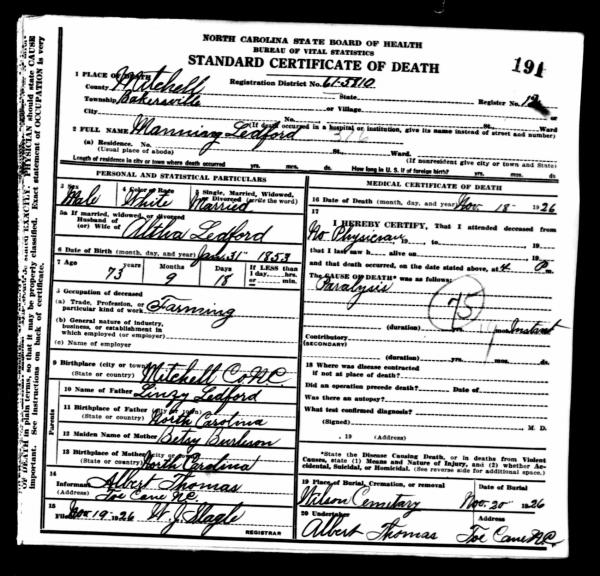 NORTH CAROLINA STATE BOARD OF HEALTH
BUREAU OF VITAL STATISTICS
STANDARD CERTIFICATE OF DEATH
191
1 PLACE OF DEATH
County Mitchell Registration District No. 61-5810 Register No. 12
Township Bakersville State
or Village
City No. Ward
(If death occurred in a hospital or institution, give its name instead of street and number)
2 FULL NAME Manning Ledford
(a) Residence. No. St. Ward.
(Usual place of abode) (If nonresident give city or town and State)
Length of residence in city or town where death occurred yrs. mos. ds. How long in U. S. if of foreign birth? yrs. mos. ds.
PERSONAL AND STATISTICAL PARTICULARS
3 Sex Male
4 Color or Race White
5 Single, Married, Widowed, or Divorced (write the word) Married
5a If married, widowed, or divorced
Husband of
(or) Wife of Altha Ledford
6 Date of Birth (month, day, and year) Jan. 31st 1853
7 Age years Months Days If LESS than
73 9 18 1 day, hrs.
or min.
8 Occupation of deceased
(a) Trade, Profession, or particular kind of work Farming
(b) General nature of industry,
business, or establishment in
which employed (or employer)
(c) Name of employer
9 Birthplace (city or town) Mitchell Co NC
(State or country)
Parents
10 Name of Father Linzy Ledford
11 Birthplace of Father (city or town)
(State or country) North Carolina
12 Maiden Name of Mother Betsy Burleson
13 Birthplace of Mother (city or town)
(State or country) North Carolina
14
Informant Albert Thomas
(Address) Toe Cane N.C.
15
Filed Nov 19 1926 W. J. Slagle
REGISTRAR
MEDICAL CERTIFICATE OF DEATH
16 Date of Death (month, day, and year) Nov. 18 1926
17
I HEREBY CERTIFY, That I attended deceased from
No Physician 19 to 19
that I last saw h alive on 19
and that death occurred, on the date stated above, at 4 P m.
The CAUSE OF DEATH* was as follows:
Paralysis
75
(duration) yrs. mos. Instant
Contributory
(SECONDARY)
(duration) yrs. mos. ds.
18 Where was disease contracted
if not at place of death?
Did an operation precede death? Date of
Was there an autopsy?
What test confirmed diagnosis?
(Signed) M. D.
, 19 (Address)
*State the Disease Causing Death, or in deaths from Violent
Causes, state (1) Means and Nature of Injury, and (2) whether Accidental, Suicidal, or Homicidal. (See reverse side for additional space).
19 Place of Burial, Cremation, or removal Date of Burial
Wilson Cemetary Nov. 20 1926
20 Undertaker Address
Albert Thomas Toe Cane N.C.
PHYSICIAN should state CAUSE
OF DEATH in plain terms, so that it may be properly classified. Exact statement of OCCUPATION is very
important. See instructions on back of certificate.